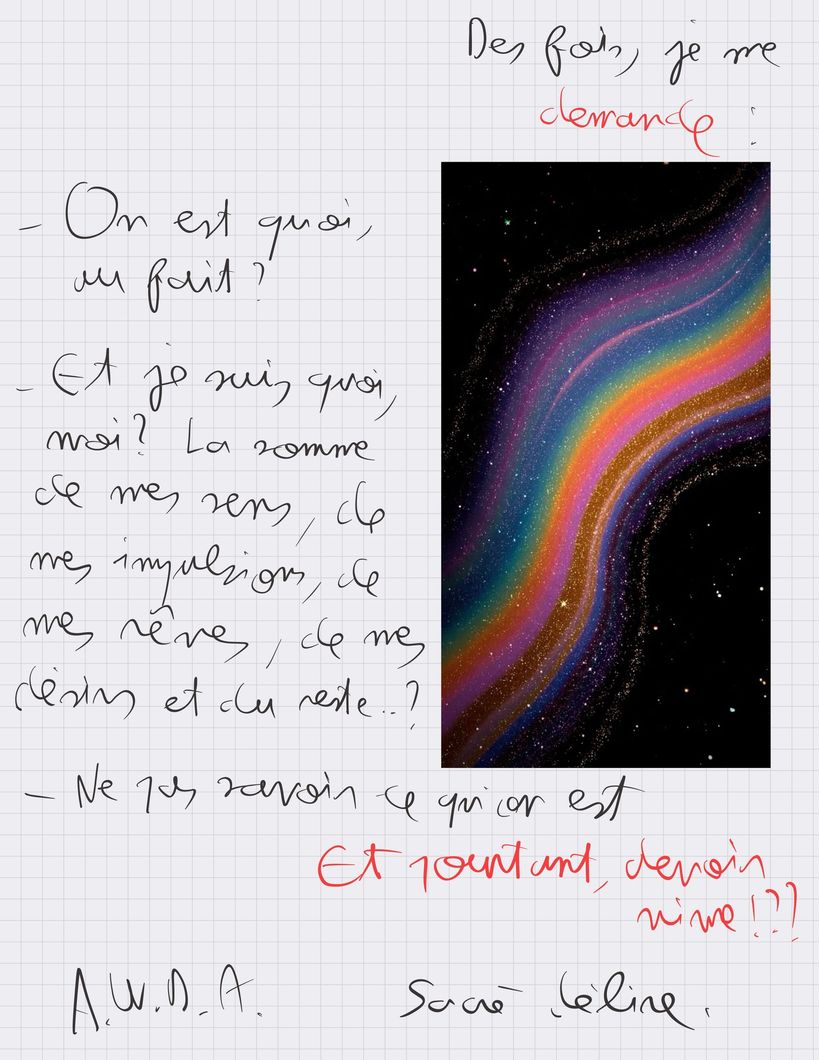 Des fois, je me
demande :
- On est quoi,
au fait ?
- Et je suis quoi,
moi ? La somme
de mes sens, de
mes impulsions, de
mes rêves, de mes
désirs et du reste..?
- Ne pas savoir ce qu'on est
Et pourtant, devoir
vivre !??
A.W.D.A. Sacré Céline.